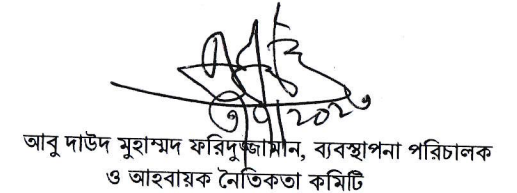 ৩/৭/২০২৩
আবু দাউদ মুহাম্মদ ফরিদুজ্জামান, ব্যবস্থাপনা পরিচালক
ও আহবায়ক নৈতিকতা কমিটি